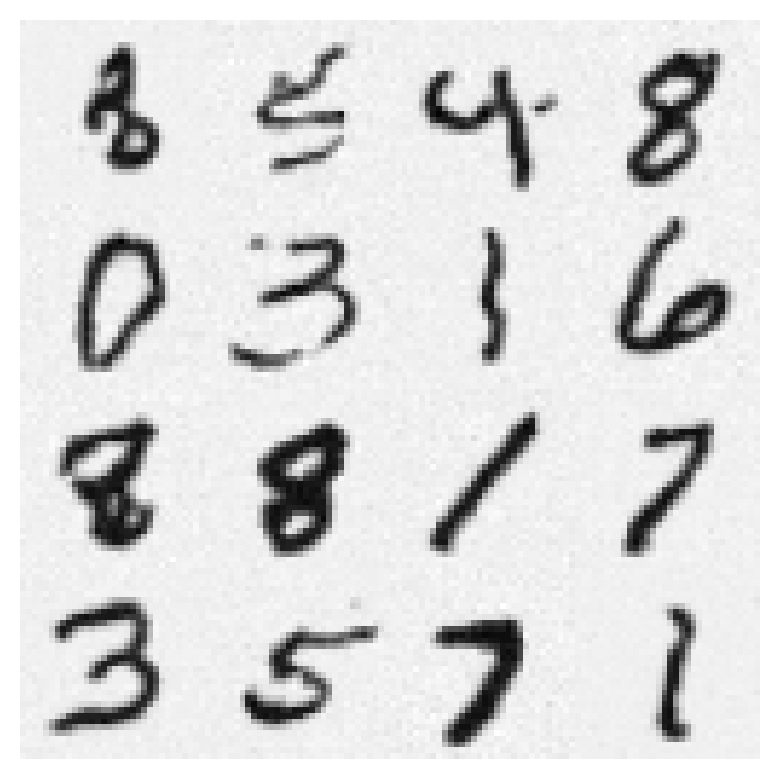 8 5 4 8
0 3 1 6
8 8 1 7
3 5 7 1